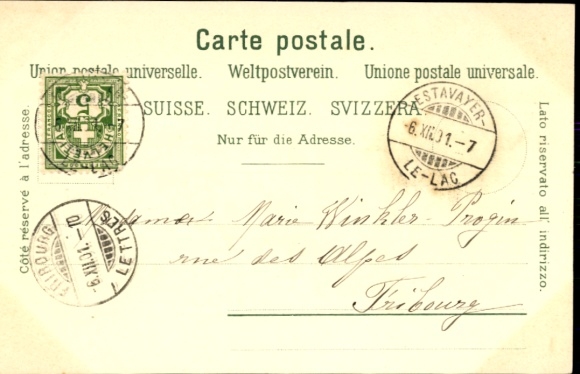 Carte postale.
Union postale universelle. Weltpostverein. Unione postale universale.
SUISSE. SCHWEIZ. SVIZZERA.
Nur für die Adresse.
Côté réservé à l'adresse.
Lato riservato all' indirizzo.
5
HELVETIA
ESTAVAYER-
6.XII.01.-7
LE-LAC
FRIBOURG
6.XII.01.-10
LETTRES
Madame Marie Winkler-Progin
rue des Alpes
Fribourg